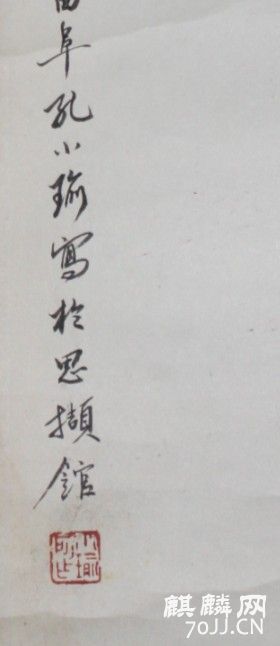 曲阜孔小瑜寫於思擷館
小瑜
麒麟网
70JJ.CN